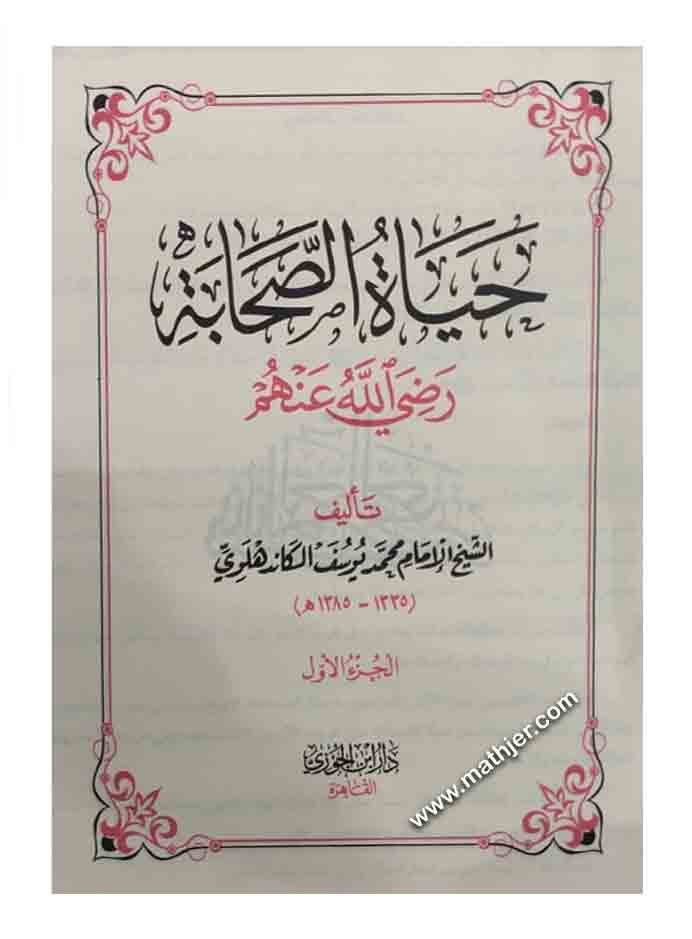 حَيَاةُ الصَّحَابَةِ
رَضِيَ اللَّهُ عَنْهُمْ
تَأليف
الشَّيخ الإمَام محمَّد يُوسُف الكاندهلَويّ
(١٣٣٥ - ١٣٨٥هـ)
الجُزءُ الأوّل
دَارُ ابْنِ الجَوْزِي
القَاهِرَة
www.mathjer.com